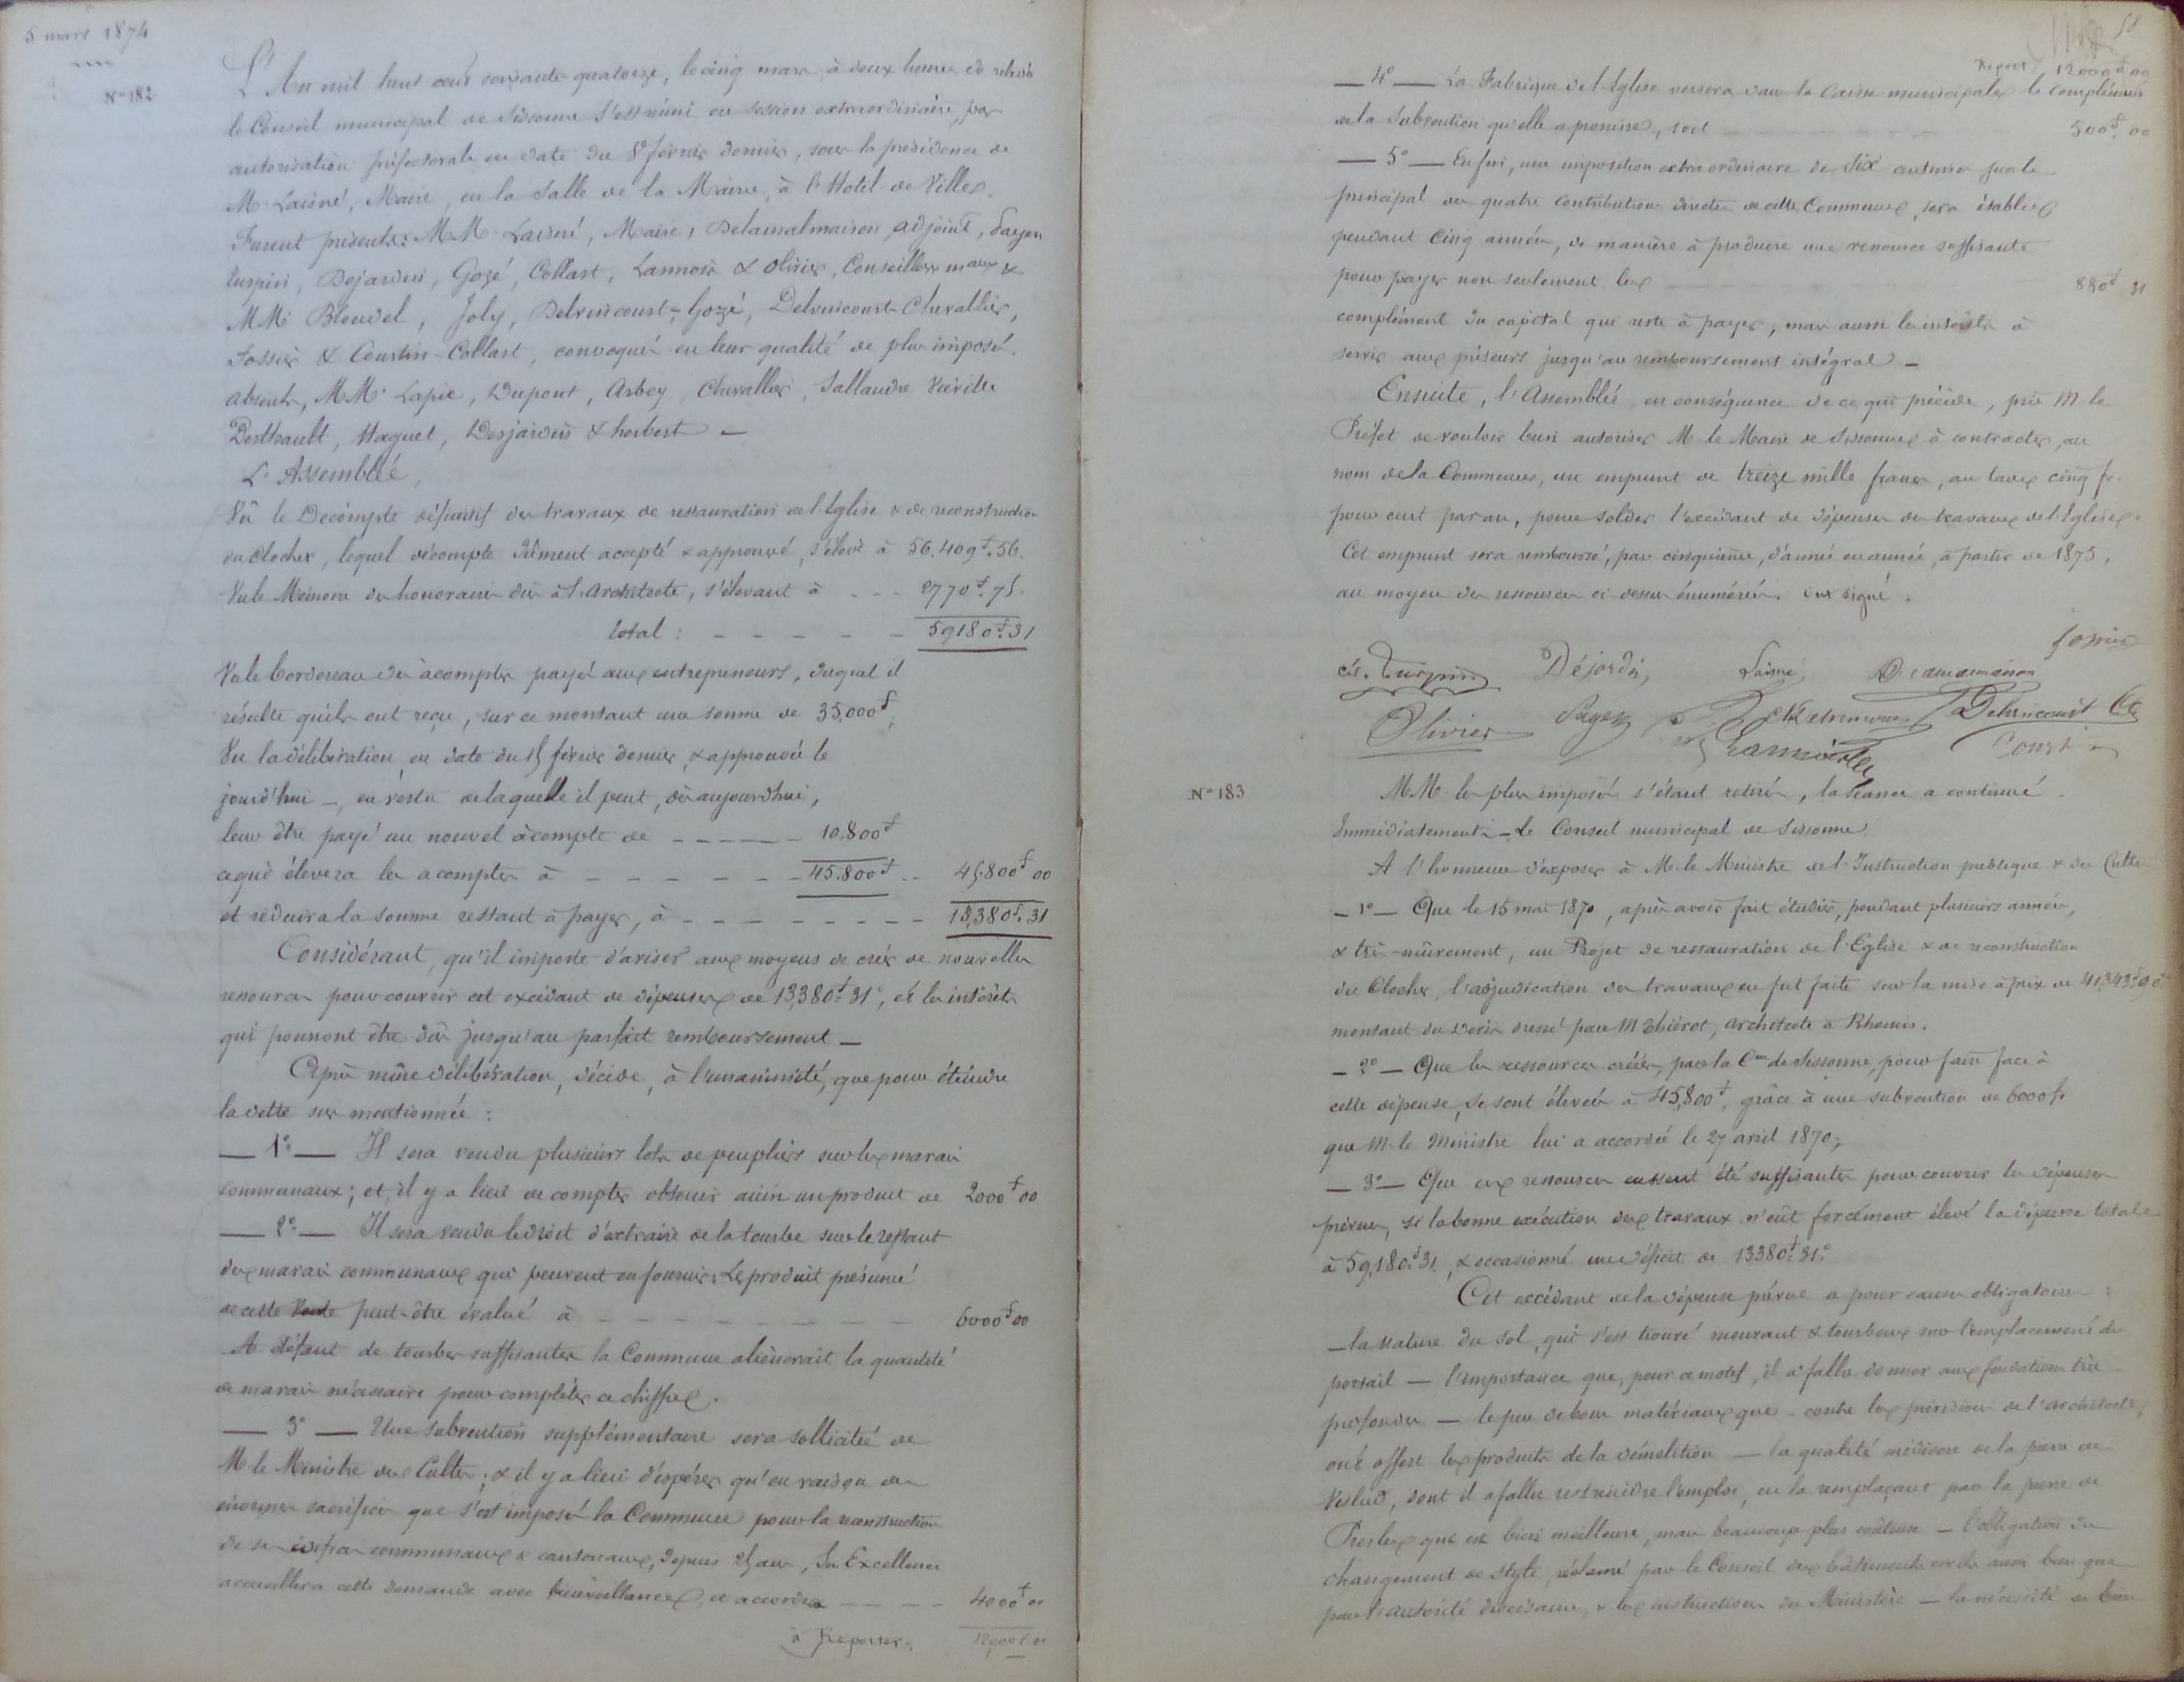 5 mars 1874
N° 182
L'An mil huit cent soixante quatorze, le cinq mars, à deux heures de relevée
le Conseil municipal de Sissonne s'est réuni en session extraordinaire, par
autorisation préfectorale en date du 8 février dernier, sous la présidence de
M. Laisné, Maire, en la Salle de la Mairie, à l'Hotel de Ville.
Furent présents: MM. Laisné, Maire, Delamalmaison, adjoint, Sayen
turpin, Dejardin, Gozé, Collart, Lannois & Olivier, Conseillers maux &
MM. Blondel, Joly, Delvincourt-Gozé, Delvincourt-Chevallier,
Fossier & Courtin-Collart, convoqués en leur qualité de plus imposés.
absents, MM. Lapie, Dupont, Arbey, Chevallier, Sallandre
Desttrault, Haquet, Desjardins & herbert —
L'Assemblée,
Vû le Décompte définitif des travaux de restauration de l'Eglise & de reconstruction
du Clocher, lequel décompte dûment accepté & approuvé, s'élève à 56,409f.56.
Vu le Mémoire des honoraires dûs à l'Architecte, s'élevant à - - - 2770f.75.
Total : - - - - - 59180f.31
Vu le bordereau des àcomptes payés aux entrepreneurs, duquel il
résulte qu'ils ont reçu, sur ce montant une somme de 35,000f,
Vu la délibération, en date du 15 février dernier, & approuvée le
jourd'hui —, en vertu de laquelle il peut, dès aujourd'hui,
leur être payé un nouvel àcompte de - - - - - 10.800f
ce qui élevera les acomptes à - - - - - - 45.800f - - 45.800f 00
et réduira la somme restant à payer, à - - - - - - - - 13,380f.31
Considérant, qu'il importe d'aviser aux moyens de créer de nouvelles
ressources pour couvrir cet excédant de dépenses de 13,380f.31c, et les intérêts
qui pourront être dûs jusqu'au parfait remboursement —
Après mûre délibération, décide, à l'unanimité, que pour éteindre
la dette sus mentionnée :
— 1° — Il sera vendu plusieurs lots de peupliers sur les marais
communaux; et, il y a lieu de compter obtenir ainsi un produit de 2000f 00
— 2° — Il sera vendu le droit d'extraire de la tourbe sur le restant
des marais communaux qui peuvent en fournir. Le produit présumé
de cette Vente peut-être évalué à - - - - - - - - 6000f 00
A défaut de tourbes suffisantes la Commune aliènerait la quantité
de marais nécessaire pour compléter ce chiffre.
— 3° — Une Subvention supplémentaire sera sollicitée de
M. le Ministre des Cultes; & il y a lieu d'espérer qu'en raison des
énormes sacrifices que s'est imposés la Commune pour la reconstruction
de ses édifices communaux & cantonaux, depuis 25 ans, Son Excellence
accueillera cette demande avec bienveillance, et accordera - - - - 4000f 00
à Reporter. 12,000f 00
58
Report 12000f 00
— 4° — La Fabrique de l'Eglise versera dans la Caisse municipale le complément
de la Subvention qu'elle a promise, soit - - - - - - 500f 00
— 5° — Enfin, une imposition extraordinaire de Six centimes sur le
principal des quatre contributions directes de cette Commune, sera établie
pendant Cinq années, de manière à produire une ressource suffisante
pour payer non seulement les - - - - - - 880f 31
complément du capital qui reste à payer, mais aussi les intérêts à
servir aux prêteurs jusqu'au remboursement intégral —
Ensuite, l'Assemblée en conséquence de ce qui précède, prie M. le
Préfet de vouloir bien autoriser M. le Maire de Sissonne à contracter, au
nom de la Commune, un emprunt de treize mille francs, au taux cinq fr.
pour cent par an, pour solder l'excédant de dépenses des travaux de l'Eglise.
Cet emprunt sera remboursé, par cinquième, d'année en année, à partir de 1875,
au moyen des ressources ci-dessus énumérées. Ont signé.
Fossier
Turpin Déjardin Laisné Delamalmaison
Olivier Sayen Delvincourt Delvincourt Ch
Lannois Courtin
N° 183
MM. les plus imposés s'étant retirés, la Séance a continué
Immédiatement. — Le Conseil municipal de Sissonne
A l'honneur d'exposer à M. le Ministre de l'Instruction publique & des Cultes
— 1° — Que le 15 mai 1870, après avoir fait étudier, pendant plusieurs années,
& très-mûrement, un Projet de restauration de l'Eglise & de reconstruction
du Clocher, l'adjudication des travaux en fut faite sur la mise à prix de 41,343f.90c
montant du devis dressé par M. Thiérot, architecte à Rheims.
— 2° — Que les ressources créées, par la Cne de Sissonne, pour faire face à
cette dépense, se sont élevées à 45,800f, grâce à une subvention de 6000 fr.
que M. le Ministre lui a accordée le 27 avril 1870;
— 3° — Que ces ressources eussent été suffisantes pour couvrir les dépenses
prévues, si la bonne exécution des travaux n'eût forcément élevé la dépense totale
à 59,180f.31, & occasionné un déficit de 13380f.31c
Cet excédant de la dépense prévue a pour causes obligatoires :
— la Nature du sol, qui s'est trouvé mouvant & tourbeux sur l'emplacement du
portail — l'importance que, pour ce motif, il a fallu donner aux fondations très
profondes — le peu de bons matériaux que - contre les prévisions de l'architecte,
ont offert les produits de la démolition — la qualité médiocre de la pierre de
Veslud, dont il a fallu restreindre l'emploi, en la remplaçant par la pierre de
Presles qui est bien meilleure, mais beaucoup plus coûteuse — l'obligation du
changement de style, réclamé par le Conseil des bâtiments civils aussi bien que
par l'autorité diocésaine, & les instructions du Ministère — la nécessité de bien